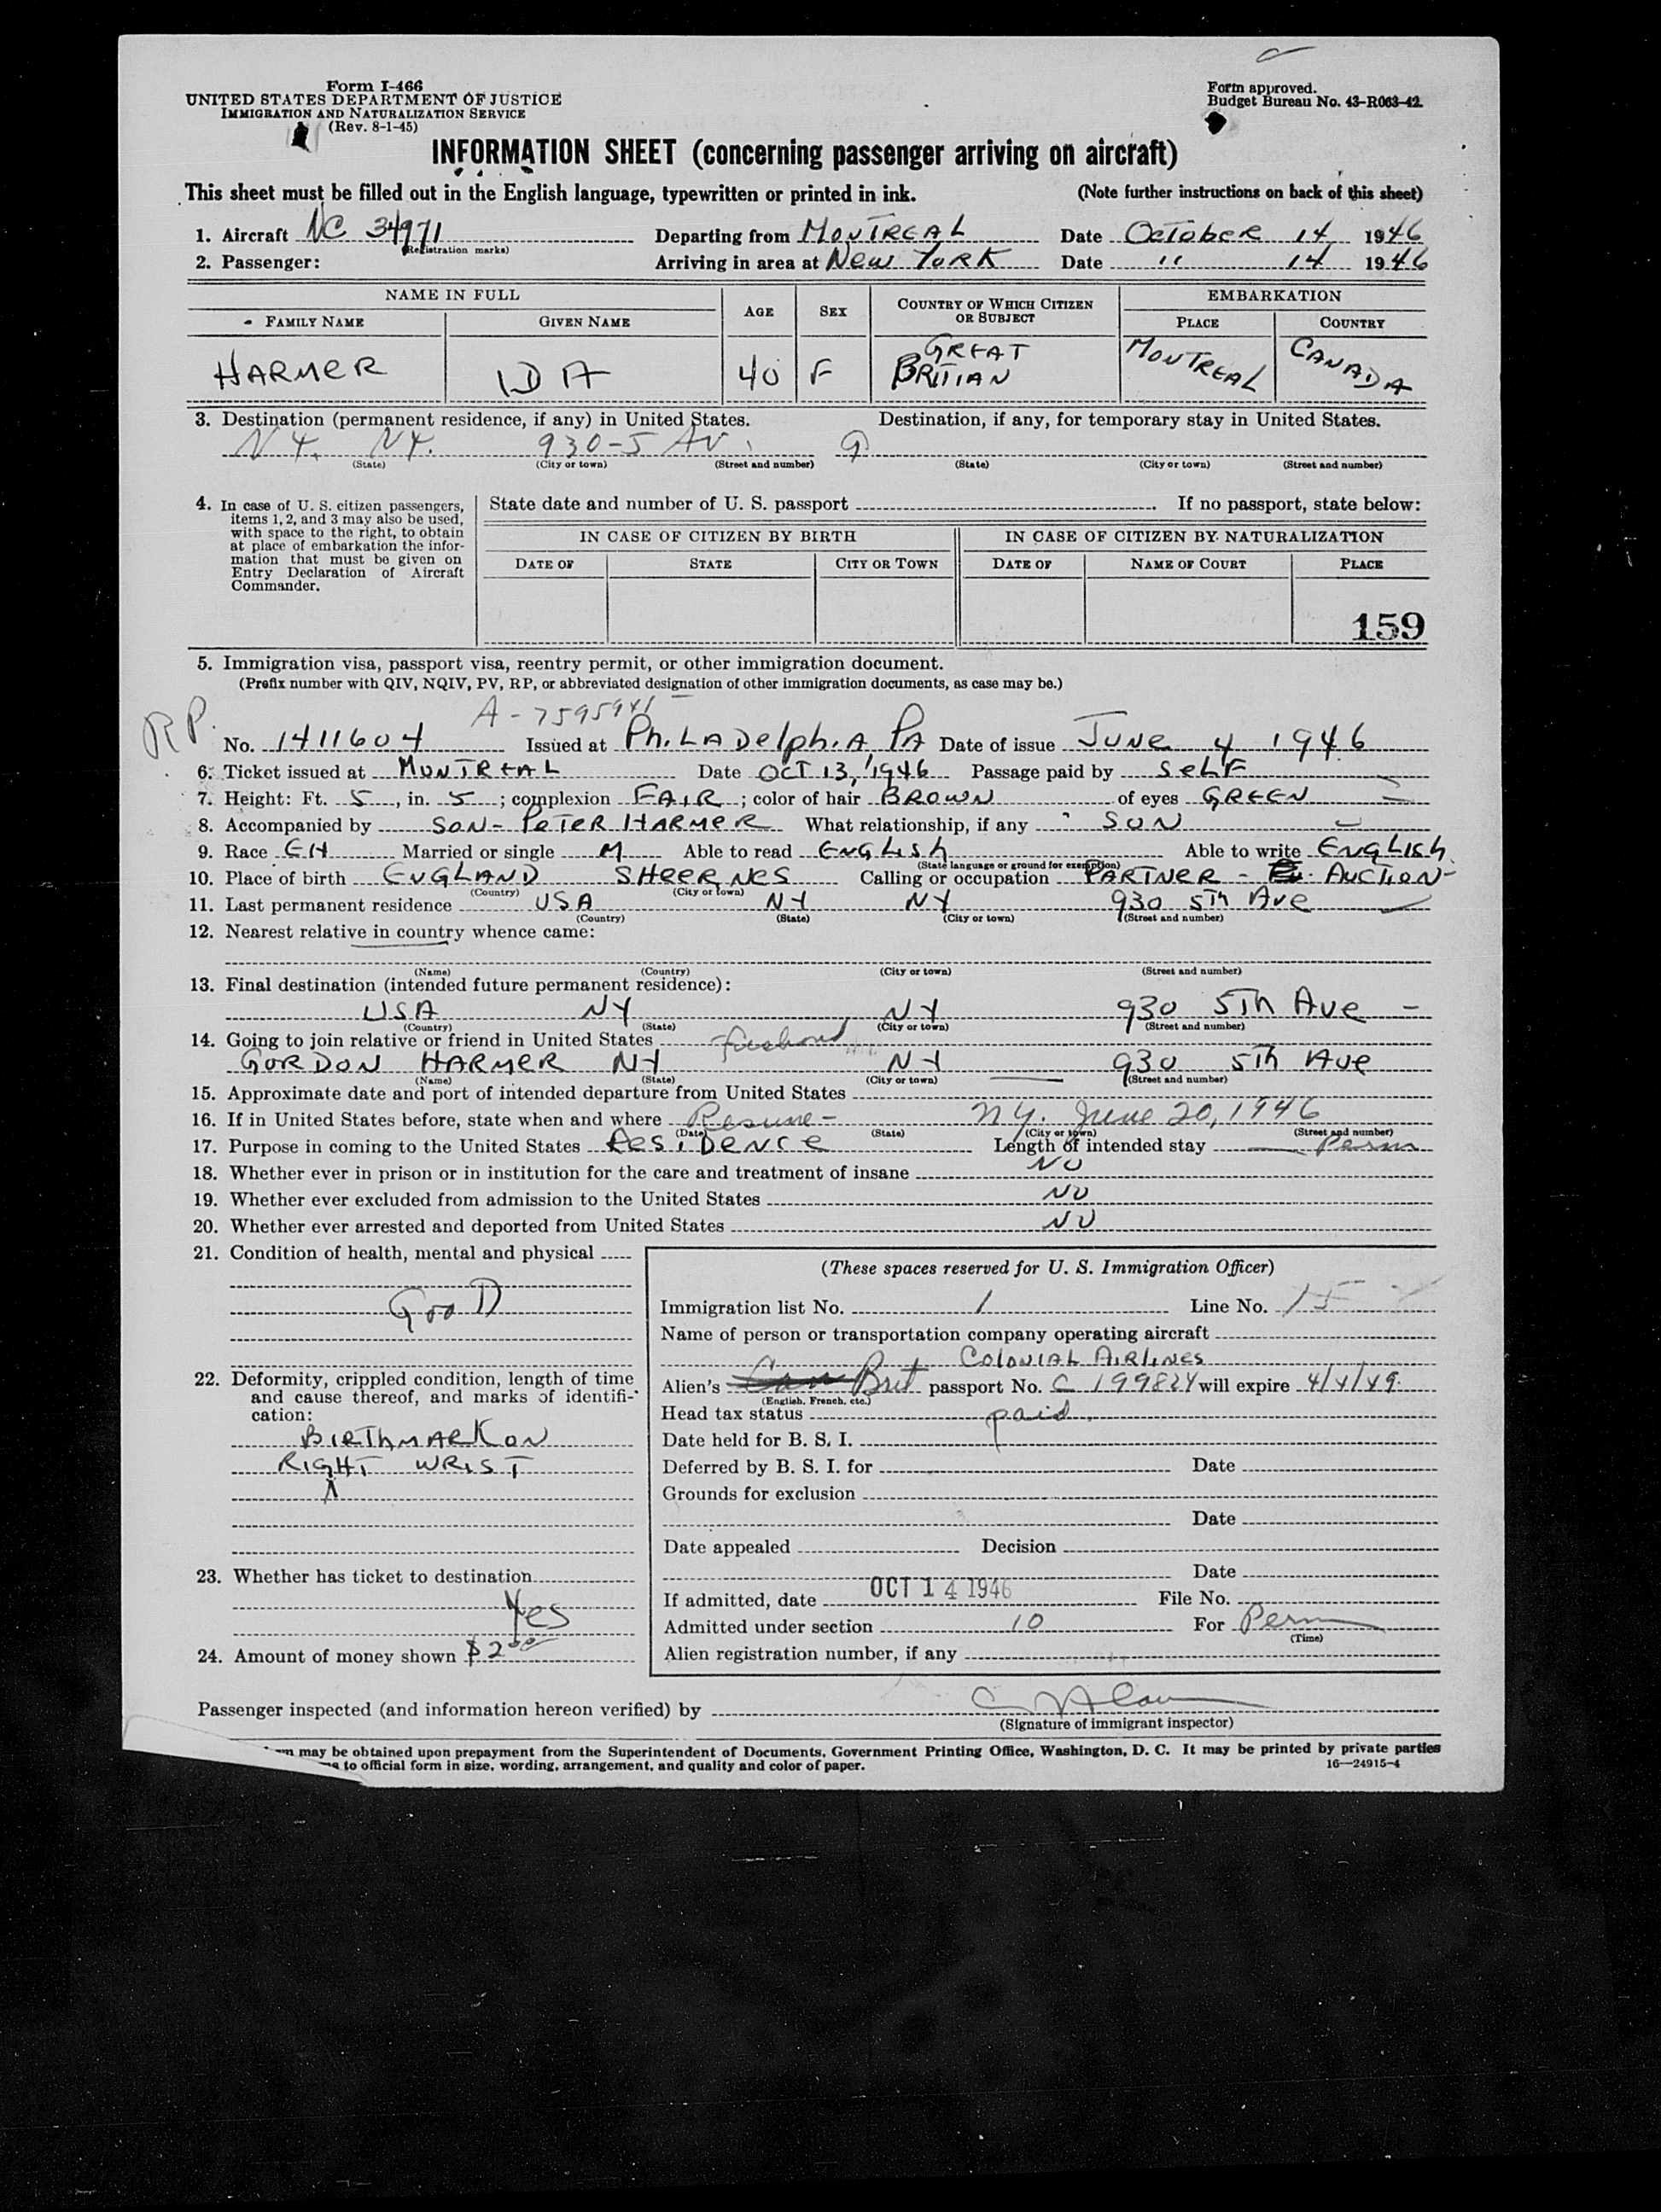 Form I-466
UNITED STATES DEPARTMENT OF JUSTICE
IMMIGRATION AND NATURALIZATION SERVICE
(Rev. 8-1-45)
Form approved.
Budget Bureau No. 43-R063-42.
INFORMATION SHEET (concerning passenger arriving on aircraft)
This sheet must be filled out in the English language, typewritten or printed in ink. (Note further instructions on back of this sheet)
1. Aircraft NC 34971 Departing from MONTREAL Date OCTOBER 14 1946
(Registration marks)
2. Passenger: Arriving in area at NEW YORK Date " 14 1946
NAME IN FULL AGE SEX COUNTRY OF WHICH CITIZEN OR SUBJECT EMBARKATION
FAMILY NAME GIVEN NAME PLACE COUNTRY
HARMER IDA 40 F GREAT BRITIAN MONTREAL CANADA
3. Destination (permanent residence, if any) in United States. Destination, if any, for temporary stay in United States.
N.Y. N.Y. 930-5 AV.
(State) (City or town) (Street and number) (State) (City or town) (Street and number)
4. In case of U. S. citizen passengers, items 1, 2, and 3 may also be used, with space to the right, to obtain at place of embarkation the information that must be given on Entry Declaration of Aircraft Commander.
State date and number of U. S. passport If no passport, state below:
IN CASE OF CITIZEN BY BIRTH IN CASE OF CITIZEN BY NATURALIZATION
DATE OF STATE CITY OR TOWN DATE OF NAME OF COURT PLACE
159
5. Immigration visa, passport visa, reentry permit, or other immigration document.
(Prefix number with QIV, NQIV, PV, RP, or abbreviated designation of other immigration documents, as case may be.)
A-7595941
RP. No. 1411604 Issued at PhiLADelphiA PA Date of issue JUNE 4 1946
6. Ticket issued at MONTREAL Date OCT 13, 1946 Passage paid by SELF
7. Height: Ft. 5, in. 5; complexion FAIR; color of hair BROWN of eyes GREEN
8. Accompanied by SON-PETER HARMER What relationship, if any SON
9. Race EH Married or single M Able to read ENGLISH Able to write ENGLISH
(State language or ground for exemption)
10. Place of birth ENGLAND SHEERNES Calling or occupation PARTNER - AUCTION-
(Country) (City or town)
11. Last permanent residence USA NY NY 930 5TH AVE
(Country) (State) (City or town) (Street and number)
12. Nearest relative in country whence came:
(Name) (Country) (City or town) (Street and number)
13. Final destination (intended future permanent residence):
USA NY NY 930 5TH AVE
(Country) (State) (City or town) (Street and number)
14. Going to join relative or friend in United States husband
GORDON HARMER NY NY 930 5TH AVE
(Name) (State) (City or town) (Street and number)
15. Approximate date and port of intended departure from United States
16. If in United States before, state when and where Resume- N.Y. June 20, 1946
(Date) (State) (City or town) (Street and number)
17. Purpose in coming to the United States RESIDENCE Length of intended stay Perm
18. Whether ever in prison or in institution for the care and treatment of insane NO
19. Whether ever excluded from admission to the United States NO
20. Whether ever arrested and deported from United States NO
21. Condition of health, mental and physical
GOOD
22. Deformity, crippled condition, length of time and cause thereof, and marks of identification:
BIRTHMARK ON
RIGHT WRIST
23. Whether has ticket to destination
Yes
24. Amount of money shown $2.00
(These spaces reserved for U. S. Immigration Officer)
Immigration list No. 1 Line No. 15
Name of person or transportation company operating aircraft
COLONIAL AIRLINES
Alien's Brit passport No. C 199824 will expire 4/4/49
(English, French, etc.)
Head tax status paid
Date held for B. S. I.
Deferred by B. S. I. for Date
Grounds for exclusion
Date
Date appealed Decision
Date
If admitted, date OCT 14 1946 File No.
Admitted under section 10 For Perm
(Time)
Alien registration number, if any
Passenger inspected (and information hereon verified) by
(Signature of immigrant inspector)
may be obtained upon prepayment from the Superintendent of Documents, Government Printing Office, Washington, D. C. It may be printed by private parties
to official form in size, wording, arrangement, and quality and color of paper. 16—24915-4